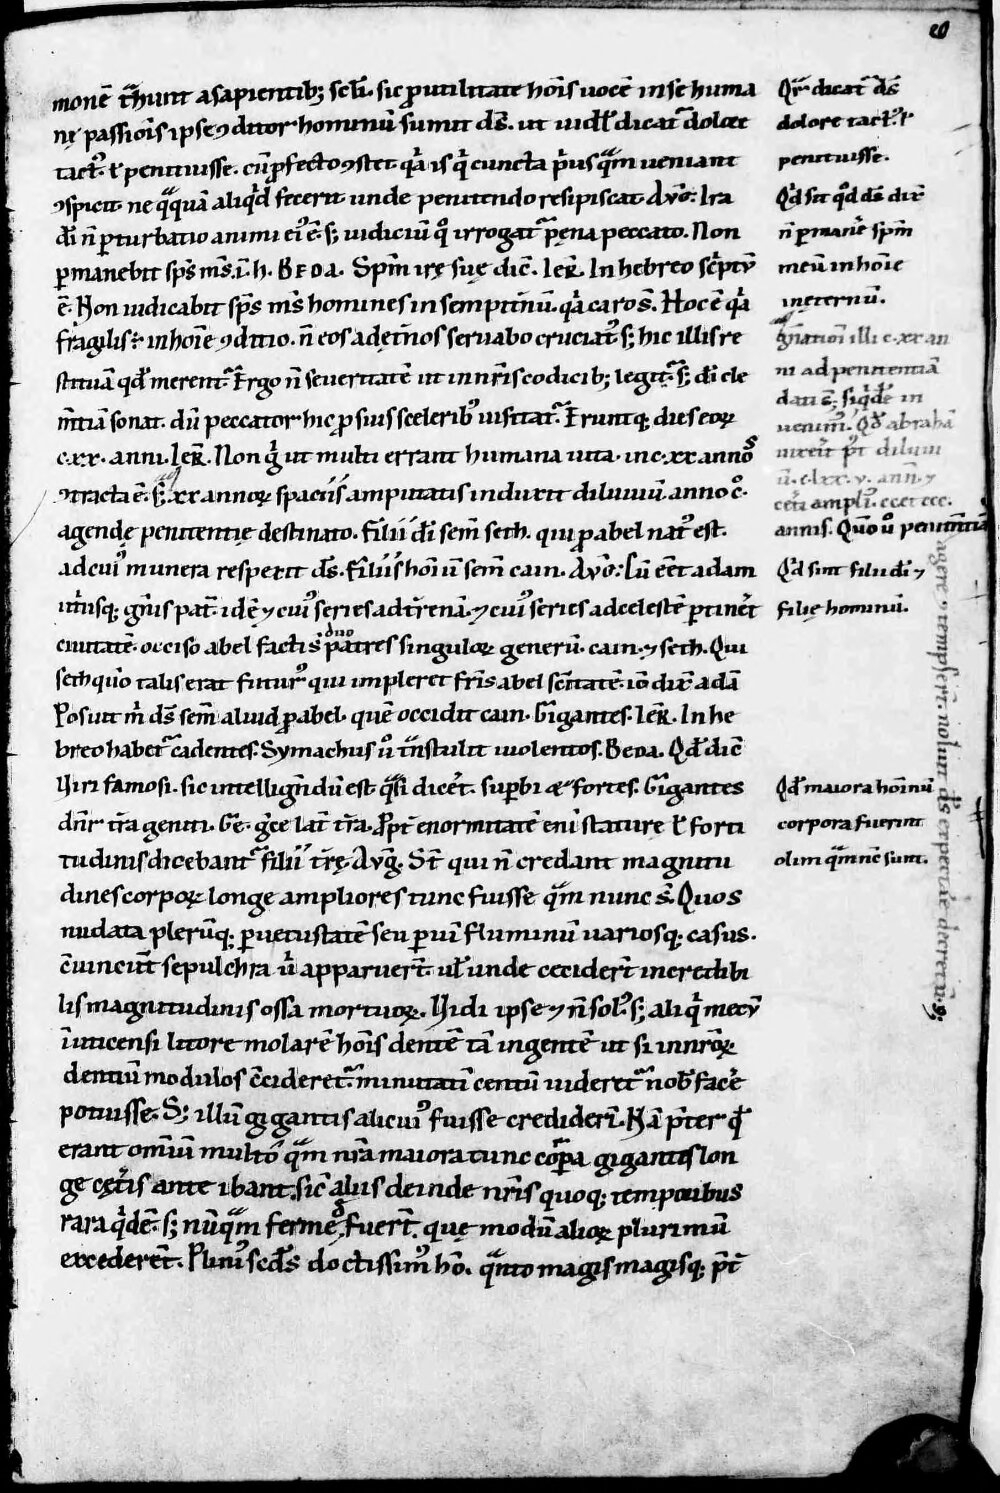 monē t̄hunt a sapientib; scłi. sic ꝓ utilitate hōis uocē in se huma
nę passiōis ipse ꝯditor hominū sumit dn̄s. ut uidł dicat᷑ dolore
tact᷒. ł penituisse. cū ꝓfecto ꝯstet q̇a is q̇ cuncta p̊us qͣm ueniant
ꝯspicit ne qͣquā aliq̇d fecerit unde penitendo resipiscat. Avḡ. Ira
dī n̄ ꝑturbatio animi ei᷒ ē. s; iudiciū q̊ irrogat᷑ pęna peccato. Non
ꝑmanebit sp̄s m̄s. i. h. BEDA. Sp̄m irę suę dic̄. Ier̄. In hebreo sċptū
ē. Non iudicabit sp̄s m̄s homines in sempit̄nū. q̇a caro s̄. Hoc ē q̇a
fragilis ē in hoīe ꝯditio. n̄ eos ad ęt̄nos seruabo cruciat᷒. s; hic illis re
stituā qđ merent᷑. Ergo n̄ seueritatē ut in nr̄is codicib; legit᷑. s; dī cle
m̄tiā sonat. dū peccator hic ꝓ suis scelerib᷒ uisitat᷑. Eruntq; dies eoꝝ
.c.xx. anni. Ier̄. Non ḡ ut multi errant humana uita. in .c.xx annos
ꝯtracta ē. s; .xx annoꝝ spaciis amputatis induxit diluuiū anno c̊.
agendę penitentię destinato. Filii dī sem̄ seth. qui ꝓ abel nat᷒ est.
ad cui᷒ munera respexit dn̄s. Filiis hoīum sem̄ cain. Avḡ. Cū eēt adam
ut̄usq; gn̄is pat̄. idē ⁊ cui᷒ series ad t̄renā. ⁊ cui᷒ series ad celestē ꝑtinet
ciuitatē. occiso abel facti s̄ duo patres singuloꝝ generū. cain. ⁊ seth. Qui
seth qm̄o talis erat futur᷒ qui impleret fr̄is abel sc̄itatē. iō dix̄ adā
Posuit m̄ dn̄s sem̄ aliud ꝓ abel. quē occidit cain. Gigantes. Ier̄. In he
breo habet᷑ cadentes. Symachus ů t̄nstulit uiolentos. BEDA. Qđ dic̄
Viri famosi. sic intelligēdū est qͣsi diceret. superbi ac fortes. Gigantes
dn̄r t̄ra geniti. Ge. gc̄e lat̄ t̄ra. Ꝓpt̄ enormitatē eni staturę ł forti
tudinis dicebant᷑ filii t̄rę. Avḡ. St̄ qui n̄ credant magnitu
dines corpoꝝ longe ampliores tunc fuisse qͣm nunc s̄. Quos
nudata plerūq; ꝑ uetustatē seu ꝑ uim fluminū uariosq; casus.
c̄uincunt sepulchra. ů apparuer̄t. uł unde cecider̄t incredibi
lis magnitudinis ossa mortuoꝝ. Vidi ipse ⁊ n̄ sol᷒ s; aliq̇ mecū
ī uticensi litore molarē hōis dentē tā ingentē ut si in nr̄oꝝ
dentiū modulos c̄cideret᷑. minutatī centū uideret᷑ nob̄ facēe
potuisse. S; illū gigantis alicui᷒ fuisse credider̄i. Nā p̄ter qđ
erant omīū multo qͣm nr̄a maiora tunc corpa gigantes lon
ge cęt̄is ante ibant. sic̄ aliis deinde nr̄is quoq; temporibus
rara q̇dē. s; nūqͣm ferme fuer̄t. quę modū alioꝝ plurimū
excederent. Plini᷒ scđs doctissim᷒ hō. qͣnto magis magisq; p̄t
Qr̄ dicat᷑ dn̄s
dolore tact᷒. ł
penituisse.
Q̇d sit qđ dn̄s dix̄
n̄ ꝑmanēt sp̄m
meū in hoīe
in ęternū.
illi .c.xx an
ni ad penitentiā
dati s̄. siq̇dē in
ueni᷑. Qđ abrahā
uixerit p̄t diluui
ū .c.lxx.v. ann̄. ⁊
cet̄i ampli᷒.
annis. Qm̄o ů penitentiā
agere ꝯtempser̄t. noluit dn̄s expectare decretū.
Q̇d sint filii dī ⁊
filię hominū.
Qđ maiora hoīnū
corpora fuerint
olim qͣm nc̄ sunt.